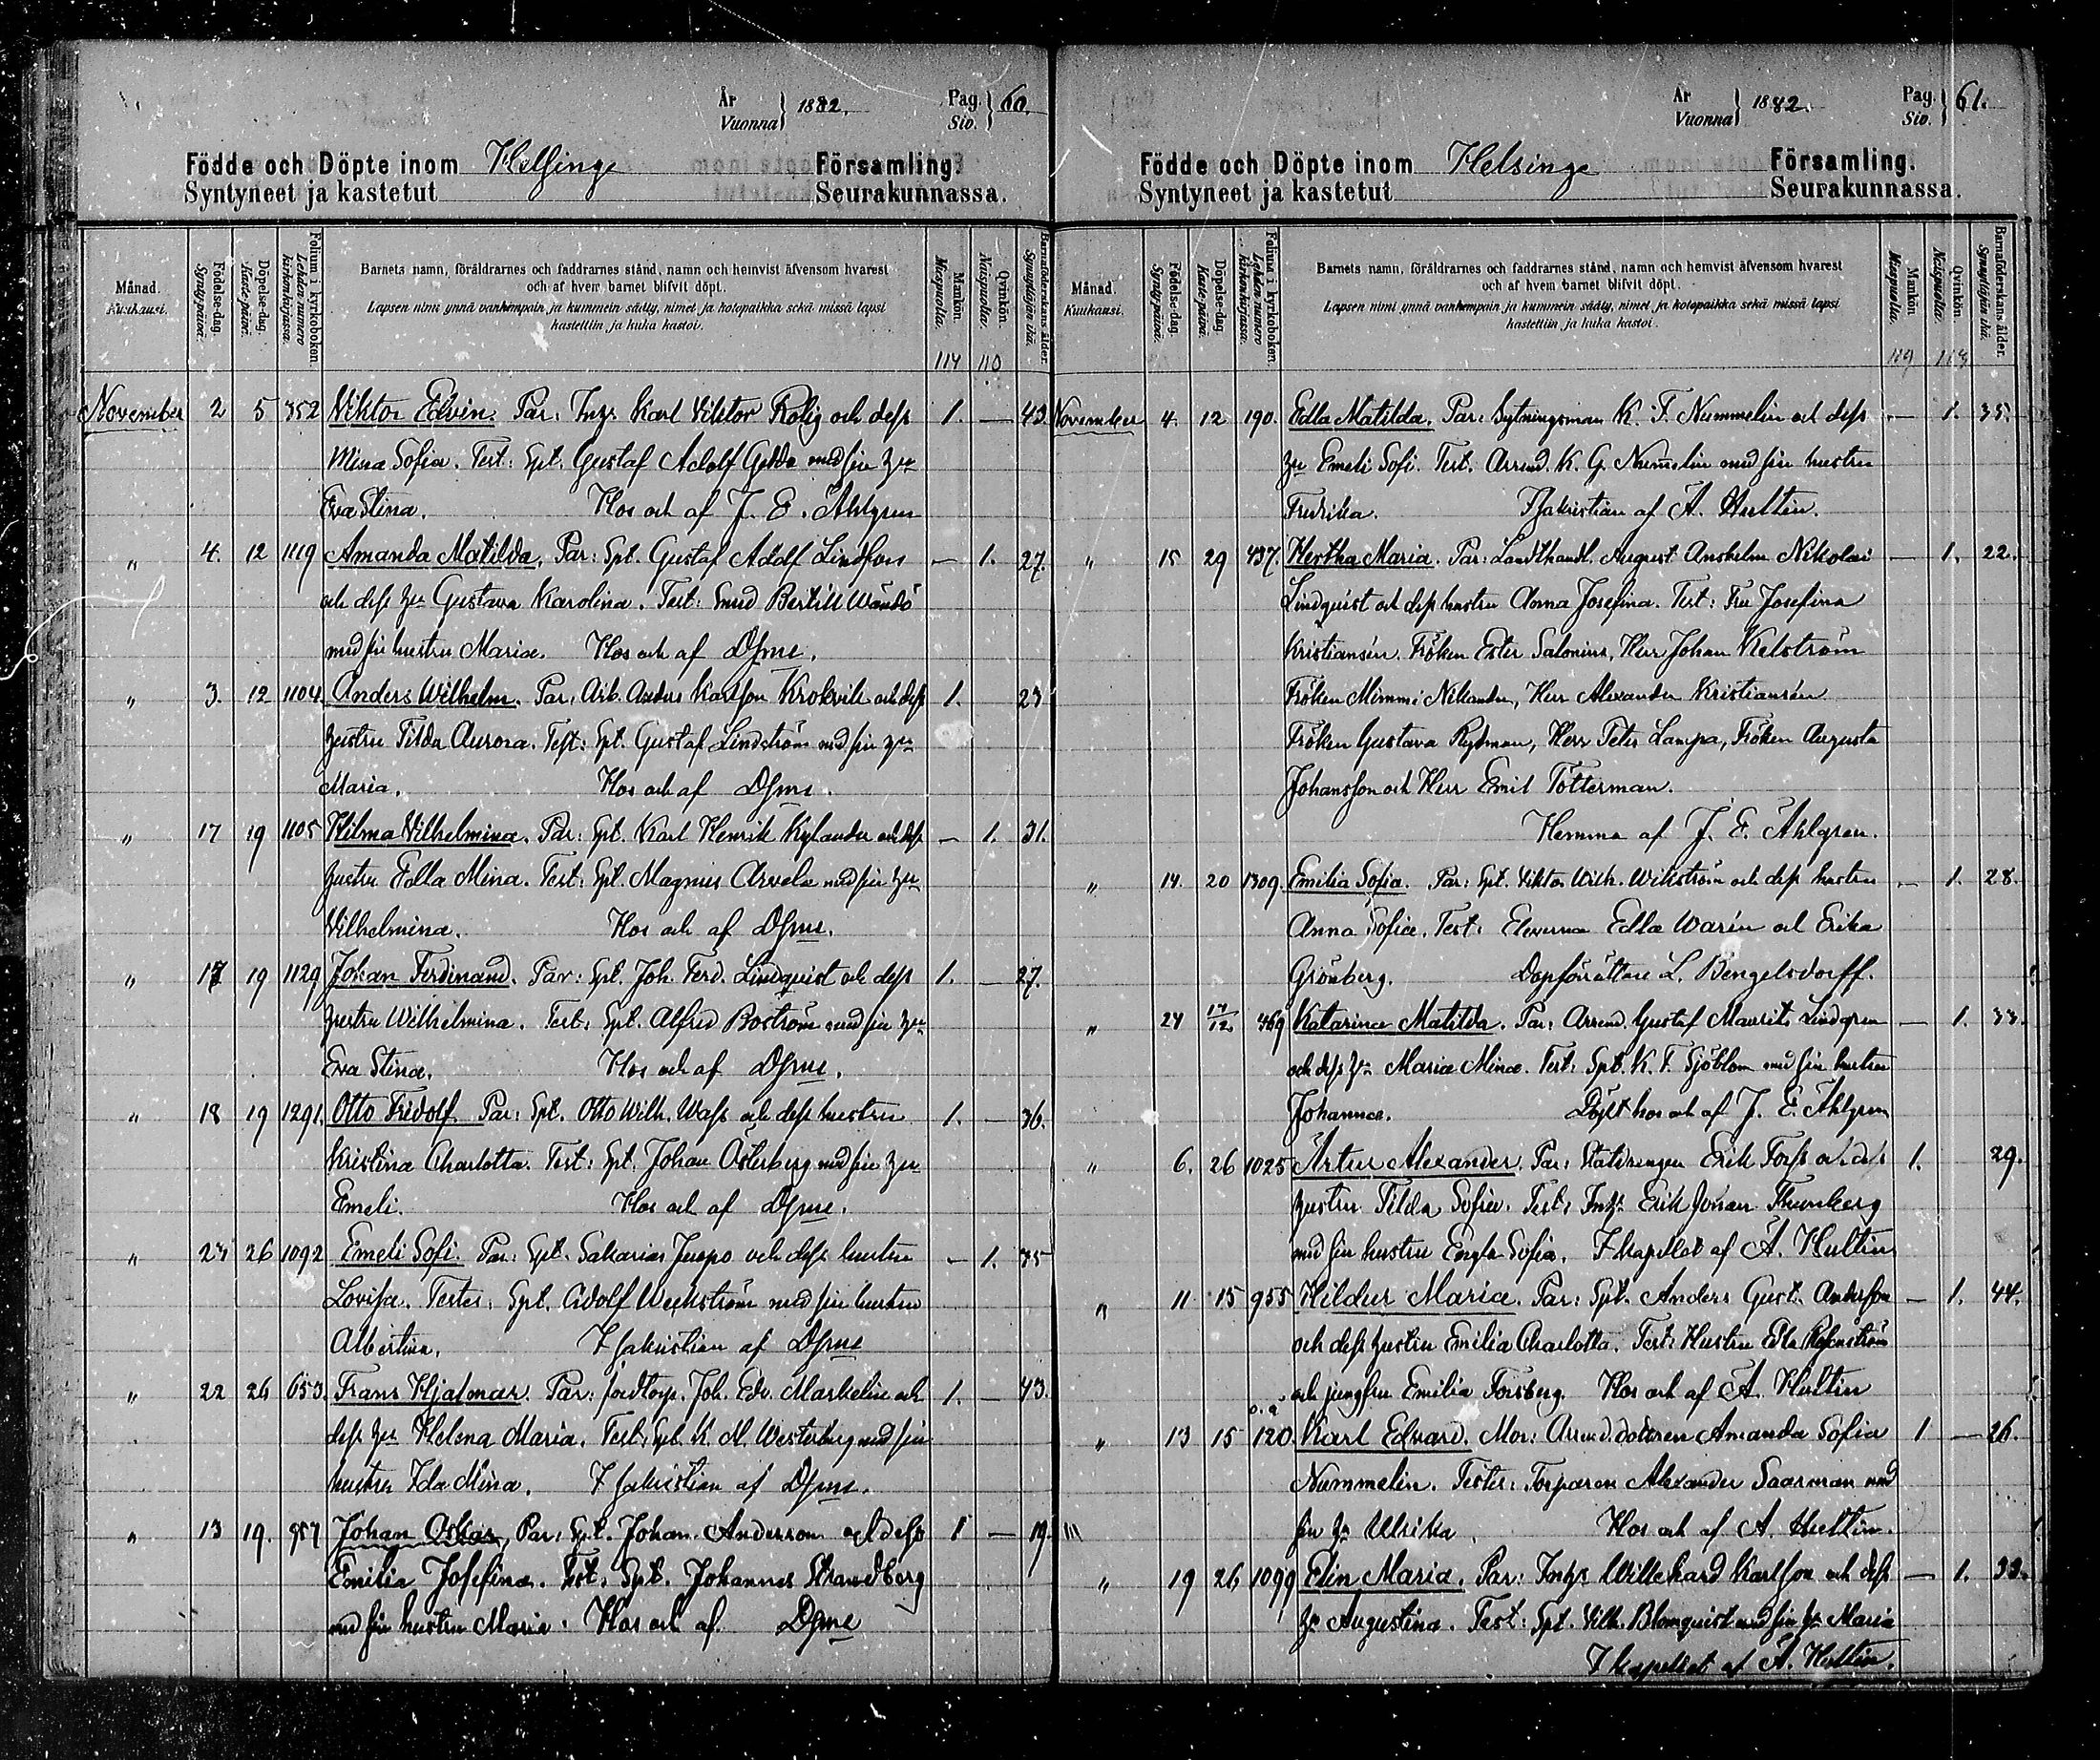 År Vuonna } 1882. Pag. Siv. } 60.
Födde och Döpte inom Helsinge Församling.
Syntyneet ja kastetut Seurakunnassa.
Månad. Kuukausi. Födelse-dag. Synty-päivä. Döpelse-dag. Kaste-päivä. Folium i kyrkoboken. Lehden numero kirkonkirjassa. Barnets namn, föräldrarnes och faddrarnes stånd, namn och hemvist äfvensom hvarest
och af hvem barnet blifvit döpt.
Lapsen nimi ynnä vanhempain ja kummein sääty, nimet ja kotopaikka sekä missä lapsi
kastettiin ja kuka kastoi.
Mankön. Miespuolia. Qvinkön. Naispuolia. Barnaföderskans ålder. Synnyttäjän ikä.
114 110
November 2 5 352 Viktor Edvin. Par: Inhys Karl Viktor Rolig och dess 1. — 43.
Mina Sofia. Test: Spt. Gustaf Adolf Gedda med sin hu
Eva Stina. Hos och af J. E. Ahlgren
" 4. 12 1119 Amanda Matilda. Par: Spt. Gustaf Adolf Lindfors — 1. 27.
och dess hu Gustava Karolina. Test: Smed Bertill Wändö
med sin hustru Maria. Hos och af Dsme.
" 3. 12 1104 Anders Wilhelm. Par: Arb. Anders Karlsson Krokvik och dess 1. 23
hustru Tilda Aurora. Test: Spt. Gustaf Lindström med sin hu
Maria. Hos och af Dsme.
" 17 19 1105 Hilma Vilhelmina. Par: Spt. Karl Henrik Kylander och dess — 1. 31.
hustru Edla Mina. Test: Spt. Magnus Arvela med sin hu
Vilhelmina. Hos och af Dsme.
" 17 19 1129 Johan Ferdinand. Par: Spt. Joh. Ferd. Lindquist och dess 1. — 27.
hustru Wilhelmina. Test: Spt. Alfred Boström med sin hu
Eva Stina. Hos och af Dsme.
" 18 19 1291. Otto Fridolf. Par: Spt. Otto Wilh. Wass och dess hustru 1. — 36.
Kristina Charlotta. Test: Spt. Johan Österberg med sin hu
Emeli. Hos och af Dsme.
" 23 26 1092 Emeli Sofi. Par: Spt. Sakarias Juopo och dess hustru — 1. 35
Lovisa. Testes: Spt. Adolf Weckström med sin hustru
Albertina. I Sakristian af Dsme
" 22 26 653. Frans Hjalmar. Par: Jordtorp. Joh. Edv. Markelin och 1. — 43.
dess hu Helena Maria. Test: Spt. K. M. Westerberg med sin
hustru Ida Mina. I Sakristian af Dsme.
" 13 19. 957 Johan Oskar, Par: Spt. Johan Andersson och dess 1 — 19.
Emilia Josefina. Test: Spt. Johannes Strandberg
med sin hustru Maria. Hos och af Dsme
År Vuonna } 1882. Pag. Siv. } 61.
Födde och Döpte inom Helsinge Församling.
Syntyneet ja kastetut Seurakunnassa.
Månad. Kuukausi. Födelse-dag. Synty-päivä. Döpelse-dag. Kaste-päivä. Folium i kyrkoboken. Lehden numero kirkonkirjassa. Barnets namn, föräldrarnes och faddrarnes stånd, namn och hemvist äfvensom hvarest
och af hvem barnet blifvit döpt.
Lapsen nimi ynnä vanhempain ja kummein sääty, nimet ja kotopaikka sekä missä lapsi
kastettiin ja kuka kastoi.
Mankön. Miespuolia. Qvinkön. Naispuolia. Barnaföderskans ålder. Synnyttäjän ikä.
119 118
November 4. 12 190. Edla Matilda. Par: Sytningsman K. F. Nummelin och dess — 1. 35.
hu Emeli Sofi. Test. Arrend. K. G. Nummelin med sin hustru
Fredrika. I Sakristian af A. Hultin.
" 15 29 437. Hertha Maria. Par: Landthandl. August Anshelm Nikolai — 1. 22.
Lindquist och dess hustru Anna Josefina. Test: Fru Josefina
Kristiansén. Fröken Ester Salonius, Herr Johan Kelström
Fröken Mimmi Nikander, Herr Alexander Kristiansén
Fröken Gustava Rydman, Herr Peter Lampa, Fröken Augusta
Johansson och Herr Emil Tötterman.
Hemma af J. E. Ahlgren.
" 14. 20 1309. Emilia Sofia. Par: Spt. Viktor Wilh. Wikström och dess hustru — 1. 28.
Anna Sofia. Test: Eleverna Edla Warén och Erika
Grönberg. Dopförrättare L. Bengelsdorff.
" 24 17/12. 469 Katarina Matilda. Par: Arrend. Gustaf Maurits Lindgren — 1. 33.
och dess hu Maria Mina. Test: Spt. K. F. Sjöblom med sin hustru
Johanna. Döpt hos och af J. E. Ahlgren
" 6. 26 1025 Artur Alexander. Par: Statdrengen Erik Forss och dess 1. 29.
hustru Tilda Sofia. Test: Inhys Erik Johan Thunberg
med sin hustru Engla Sofia. I kapellet af A. Hultin
" 11 15 955 Hildur Maria. Par: Spt. Anders Gust. Andersson — 1. 44.
och dess hustru Emilia Charlotta. Test: Hustru Edla Rosenström
och jungfru Emilia Forsberg. Hos och af A. Hultin
" 13 15 o.ä 120. Karl Edvard. Mor: Arrend.dottren Amanda Sofia 1 — 26.
Nummelin. Testes: Torparen Alexander Saarman med
sin hu Ulrika. Hos och af A. Hultin.
" 19 26 1099 Elin Maria. Par: Inhys Willehard Karlsson och dess — 1. 33.
hu Augustina. Test: Spt. Vilh. Blomquist med sin hu Maria
I kapellet af A. Hultin.